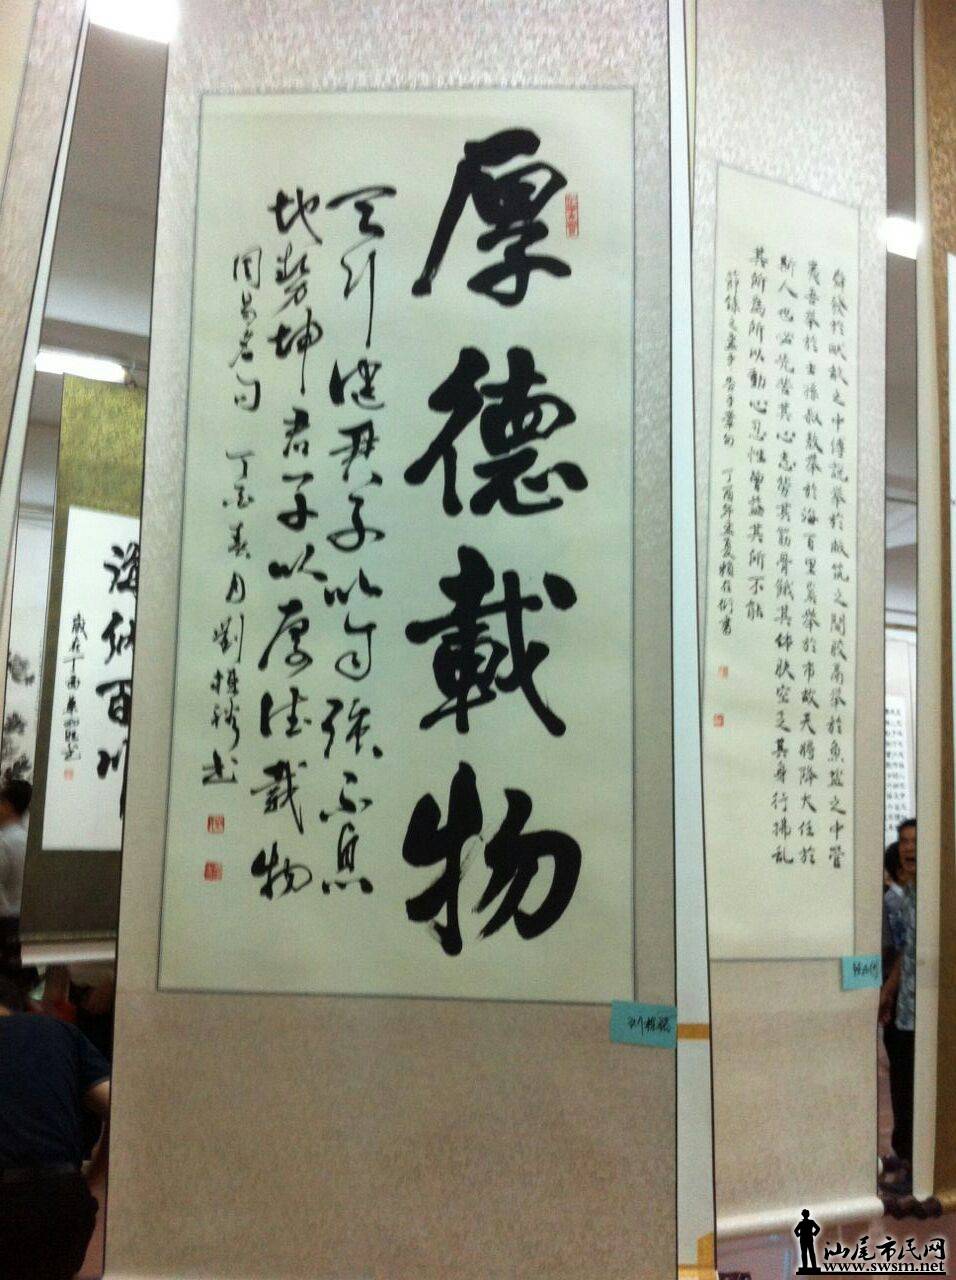 厚德載物
天行健君子以自強不息
地勢坤君子以厚德載物
周易名句 丁酉春月 劉
書
舜發於畎畝之中傅說舉於版築之間膠鬲舉於魚鹽之中管
夷吾舉於士孫叔敖舉於海百里奚舉於市故天將降大任於
斯人也必先苦其心志勞其筋骨餓其體膚空乏其身行拂亂
其所為所以動心忍性曾益其所不能
節錄之孟子告子章句 丁酉年
書
海納百川
歲在丁酉
汕尾市民网
www.swsm.net